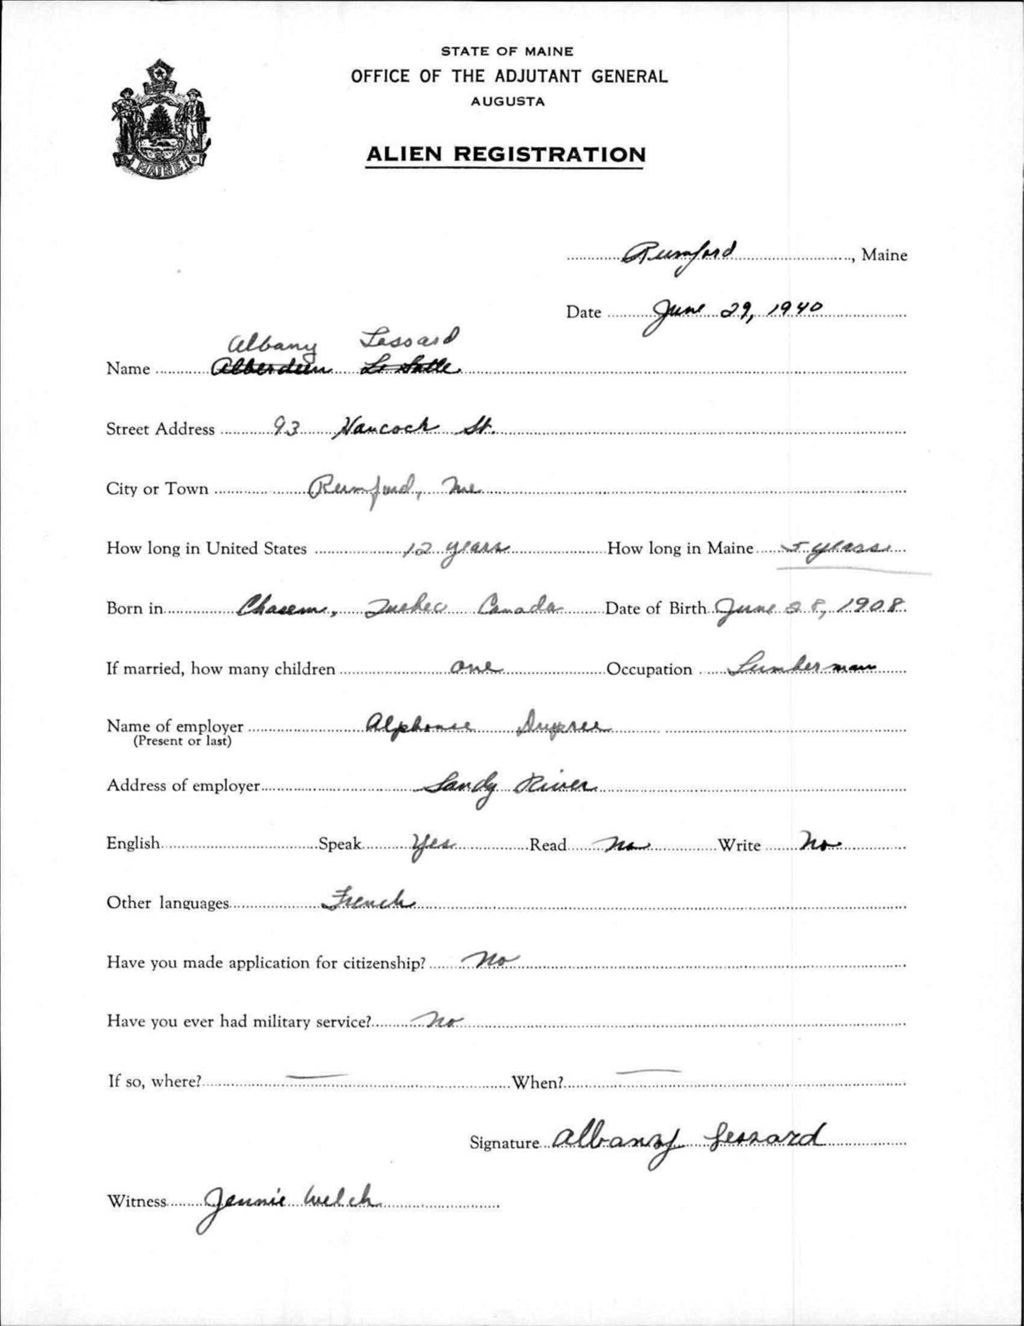 STATE OF MAINE
OFFICE OF THE ADJUTANT GENERAL
AUGUSTA
ALIEN REGISTRATION
MAINE
Rumford, Maine
Date June 29, 1940
Albany Lessard
Name
Street Address 93 Hancock St.
City or Town Rumford, Me
How long in United States 12 years How long in Maine 5 years
Born in Quebec Canada Date of Birth June 28, 1908
If married, how many children one Occupation Lumberman
Name of employer Alphonse Dupree
(Present or last)
Address of employer Sandy River
English Speak Yes Read No Write No
Other languages French
Have you made application for citizenship? No
Have you ever had military service? No
If so, where? — When? —
Signature Albany Lessard
Witness Jennie Welch